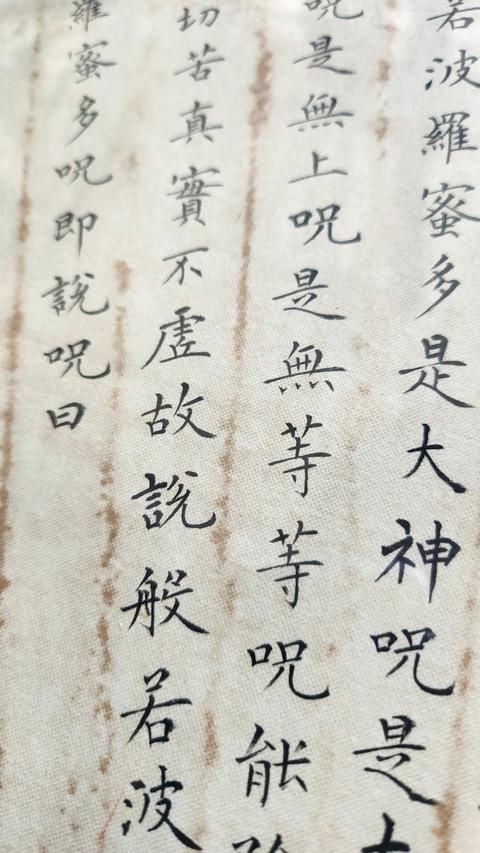 若波羅蜜多是大神呪是大
呪是無上呪是無等等呪能
切苦真實不虛故說般若波
羅蜜多呪即說呪曰